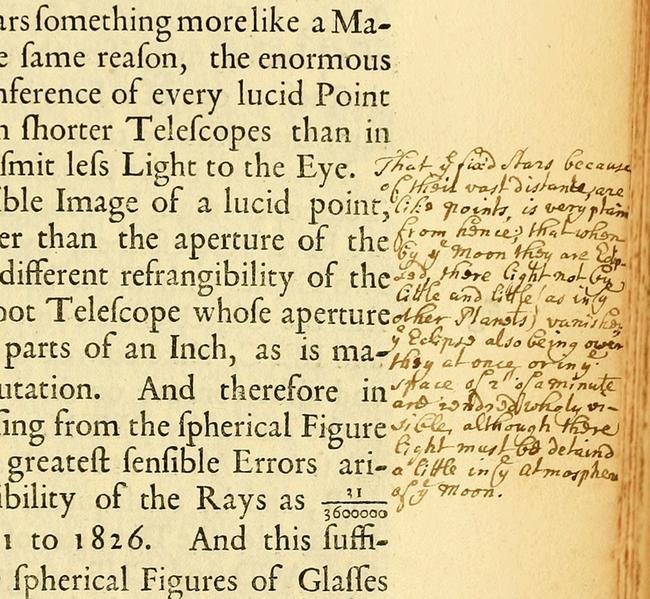 ars ſomething more like a Ma-
e ſame reaſon, the enormous
nference of every lucid Point
n ſhorter Teleſcopes than in
ſmit leſs Light to the Eye.
ible Image of a lucid point,
er than the aperture of the
different refrangibility of the
oot Teleſcope whoſe aperture
parts of an Inch, as is ma-
utation. And therefore in
ſing from the ſpherical Figure
greateſt ſenſible Errors ari-
ibility of the Rays as 31/3600000
1 to 1826. And this ſuffi-
ſpherical Figures of Glaſſes
That yͤ fixd Stars because
of their vast distante, are
like points, is very plain
from hence; that when
by yͤ Moon they are Eclip-
sed, there light not by
little and little (as in yͤ
other Planets) vanishes,
yͤ Eclipse also being over
they at once, or in yͤ
space of 2" of a minute
are rendred wholy vi-
sible, although there
light must be detaind
a little in yͤ Atmosphere
of yͤ Moon.